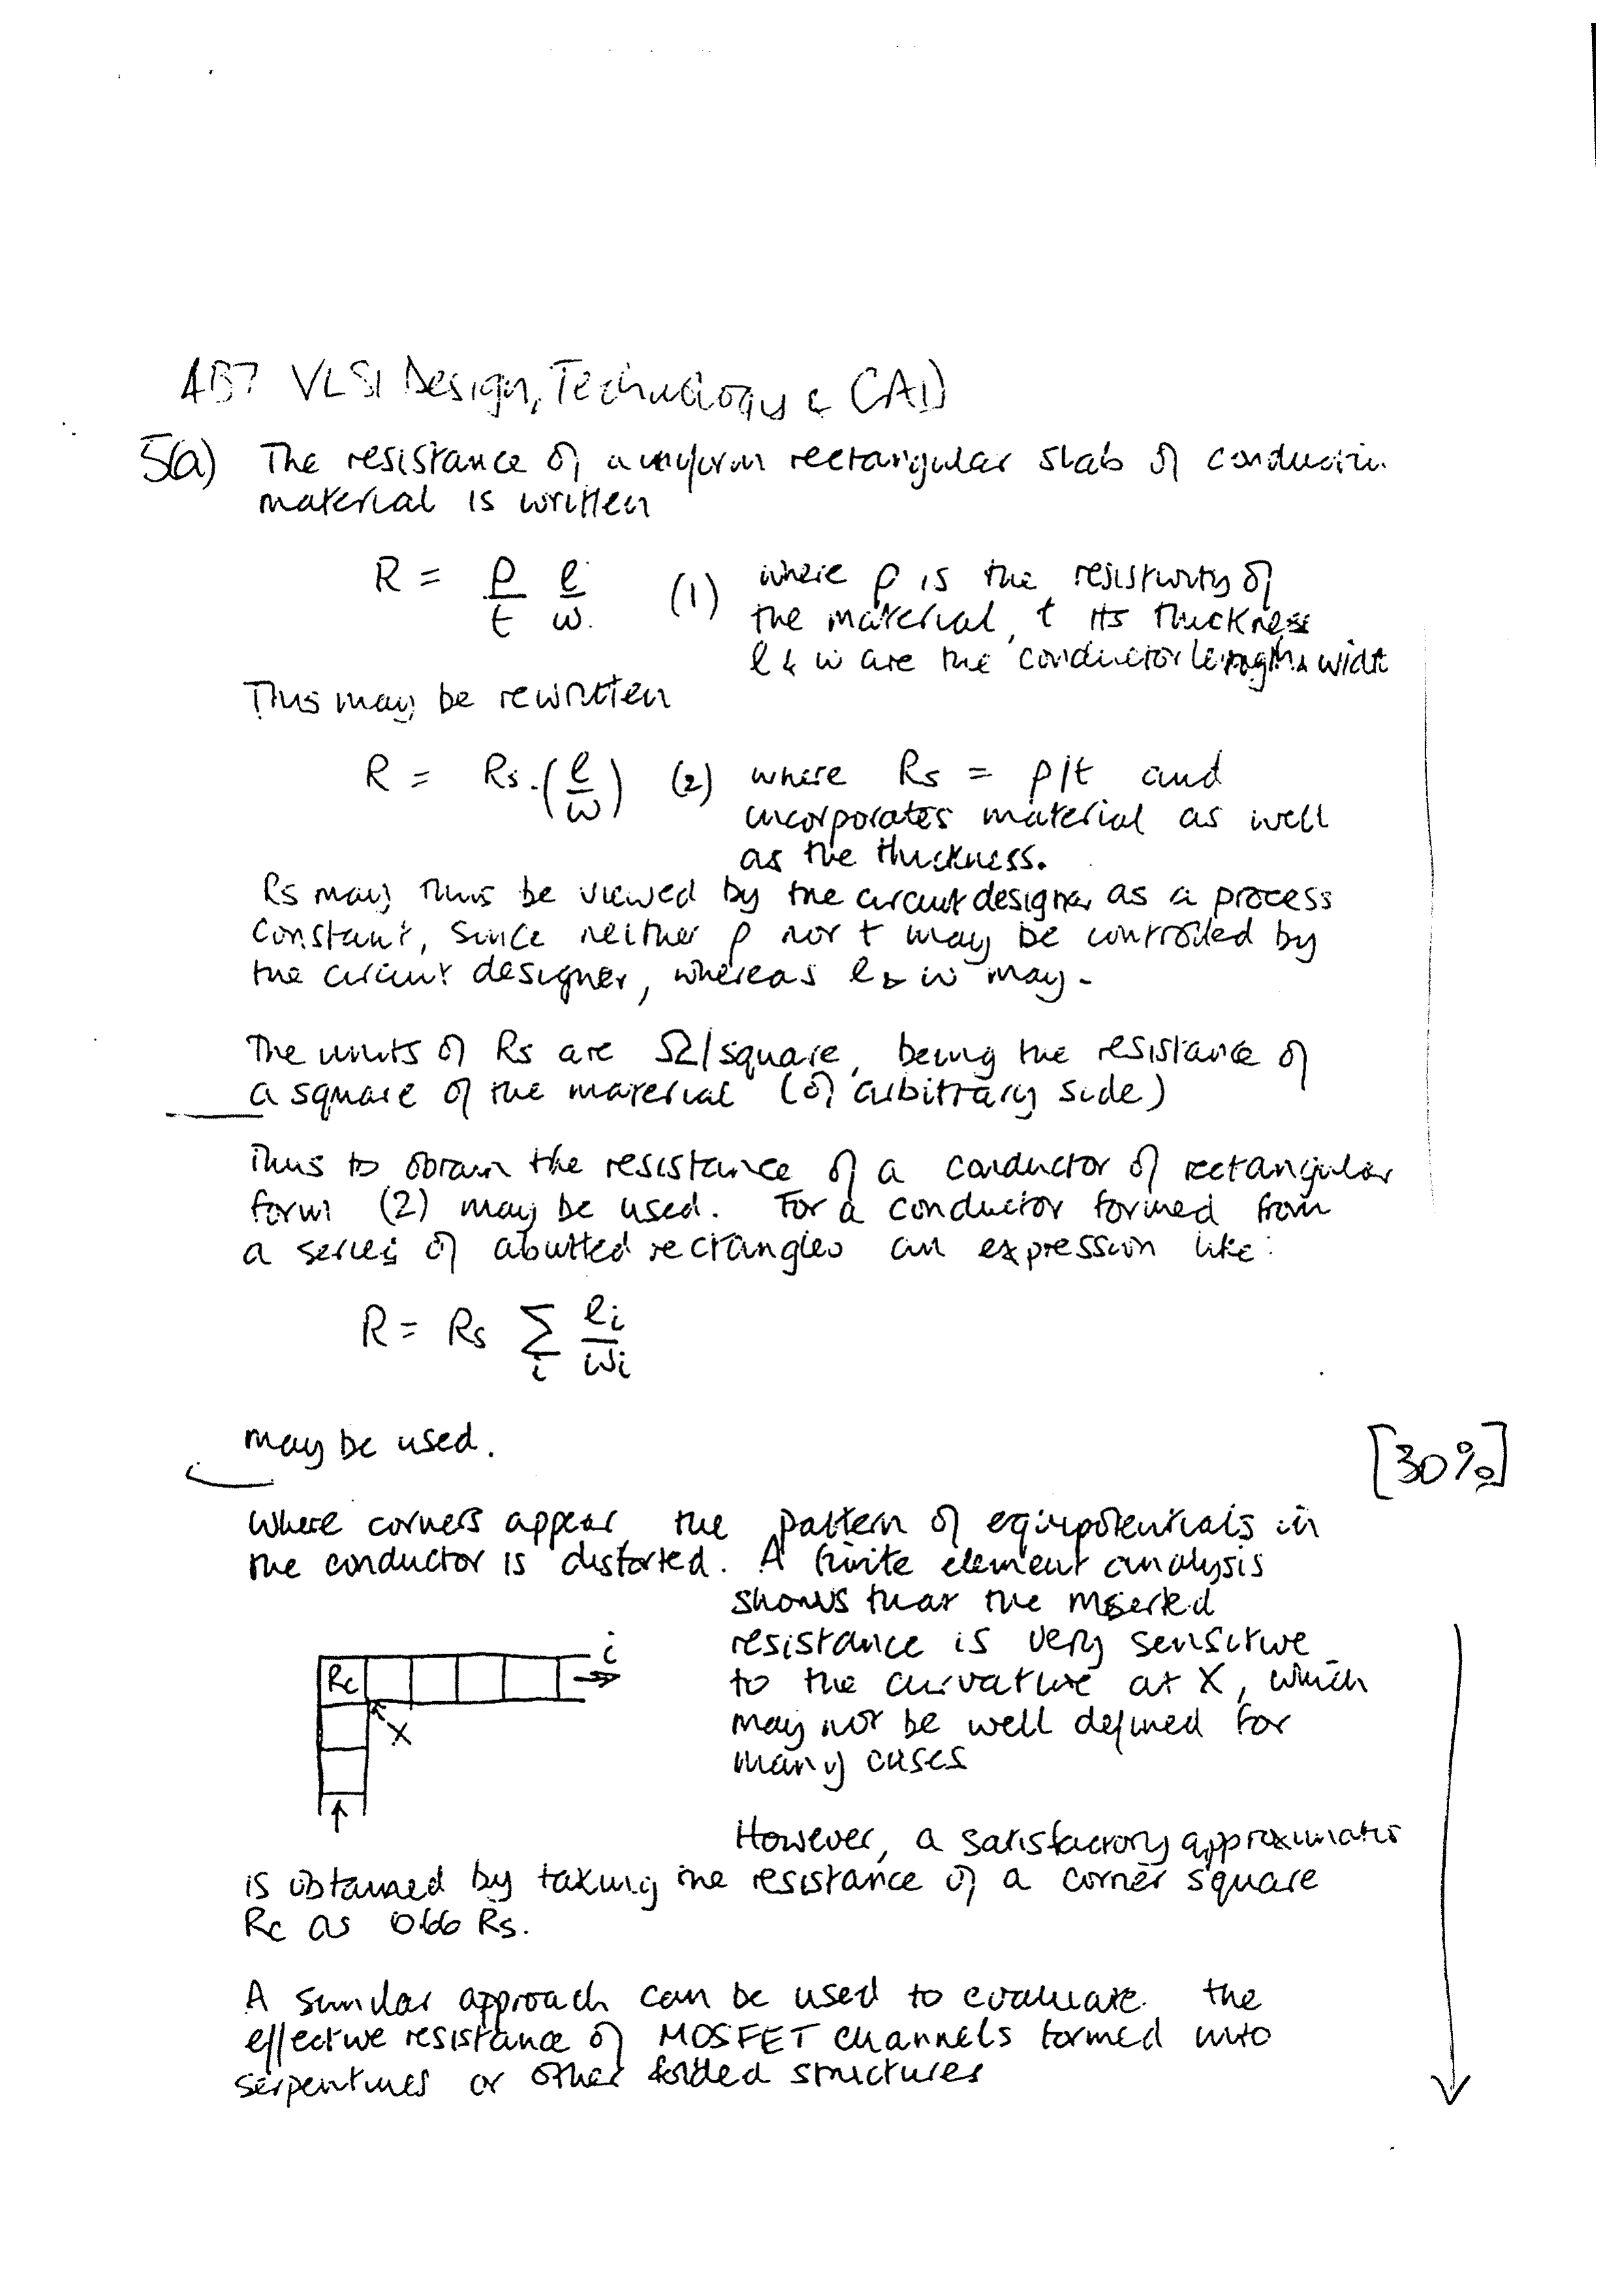 4B7 VLSI Design, Technology & CAD
5(a) The resistance of a uniform rectangular slab of conducti
material is written
R = ρ/t l/w. (1) where ρ is the resistivity of
the material, t its thickness
l & w are the conductor length & widt
This may be rewritten
R = Rs.(l/w) (2) where Rs = ρ/t and
incorporates material as well
as the thickness.
Rs may thus be viewed by the circuit designer as a process
constant, since neither ρ nor t may be controlled by
the circuit designer, whereas l & w may.
The units of Rs are Ω/square, being the resistance of
a square of the material (of arbitrary side)
Thus to obtain the resistance of a conductor of rectangular
form (2) may be used. For a conductor formed from
a series of abutted rectangles an expression like:
R = Rs Σi li/wi
may be used.
[30%]
Where corners appear, the pattern of equipotentials in
the conductor is distorted. A finite element analysis
shows that the inserted
resistance is very sensitive
to the curvature at X, which
may not be well defined for
many cases
Rc i
X
However, a satisfactory approximatio
is obtained by taking the resistance of a corner square
Rc as 0.66 Rs.
A similar approach can be used to evaluate the
effective resistance of MOSFET channels formed into
serpentines or other folded structures